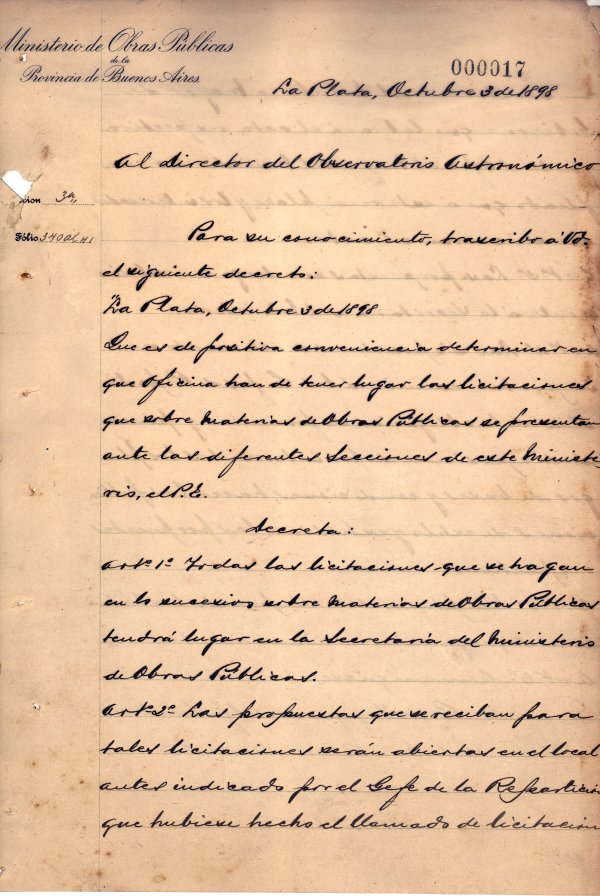 Ministerio de Obras Públicas
de la
Provincia de Buenos Aires
000017
La Plata, Octubre 3 de 1898
Al Director del Observatorio Astronómico
cion 3a,
Fólio 340 al 41
Para su conocimiento, trascribo á Vd.
el siguiente decreto:
"La Plata, Octubre 3 de 1898
Que es de positiva conveniencia determinar en
que oficina han de tener lugar las licitaciones
que sobre materias de Obras Públicas se presentan
ante las diferentes Secciones de este Ministe-
rio, el P.E.
Decreta:
Art. 1º Todas las licitaciones que se hagan
en lo sucesivo sobre materias de Obras Públicas
tendrá lugar en la Secretaría del Ministerio
de Obras Públicas.
Art. 2º Las propuestas que se reciban para
tales licitaciones serán abiertas en el local
antes indicado por el Gefe de la Reparticion
que hubiese hecho el llamado de licitacion